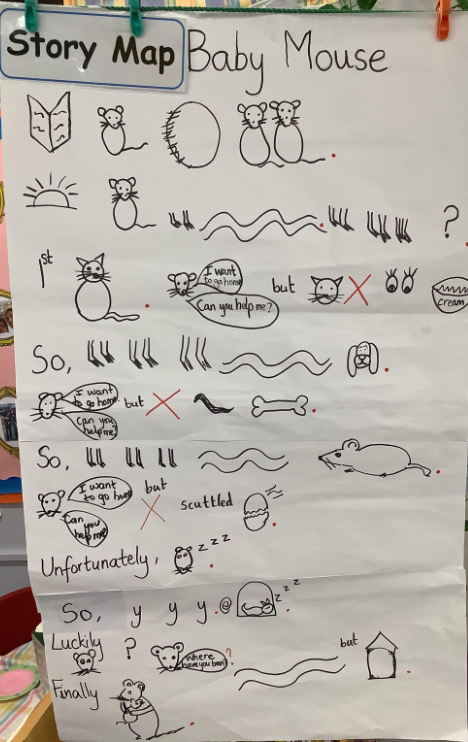 Story Map Baby Mouse
?
1st I want to go home Can you help me? but cream
So,
I want to go home Can you help me? but
So,
I want to go home Can you help me? but scuttled
Unfortunately, z z z
So, y y y @ z z z
Luckily ? Where have you been? but
Finally